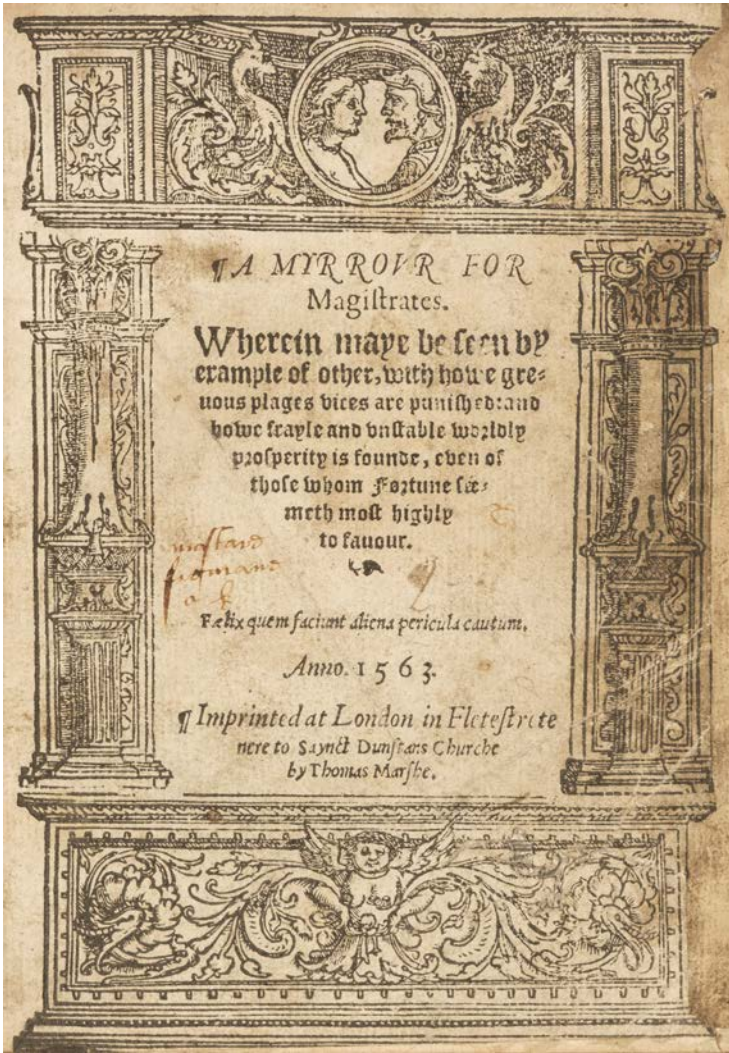 ¶A MYRROVR FOR
Magiſtrates.
Wherein maye be ſeen by
example of other, with howe gre⸗
uous plages vices are puniſhed: and
howe frayle and vnſtable worldly
proſperity is founde, even of
thoſe whom Fortune ſæ⸗
meth moſt highly
to fauour.
Fælix quem faciunt aliena pericula cautum.
Anno. 1563.
¶Imprinted at London in Fleteſtrete
nere to Saynct Dunſtans Churche
by Thomas Marſhe.